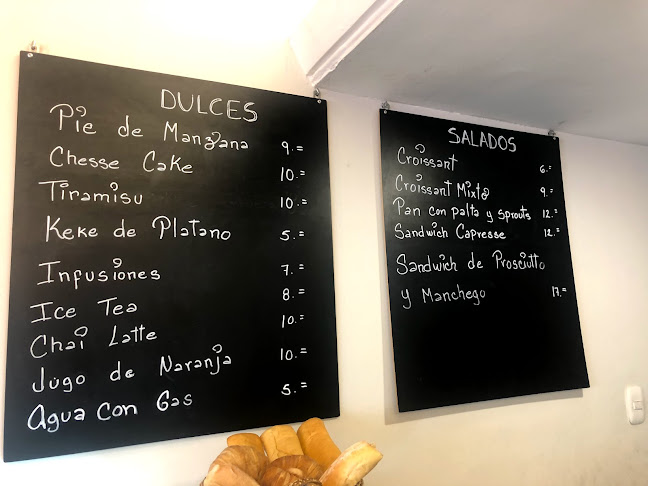 DULCES
Pie de Manzana 9.=
Chesse Cake 10.=
Tiramisu 10.=
Keke de Platano 5.=
Infusiones 7.=
Ice Tea 8.=
Chai Latte 10.=
Jugo de Naranja 10.=
Agua con Gas 5.=
SALADOS
Croissant 6.=
Croissant Mixto 9.=
Pan con palta y sprouts 12.=
Sandwich Capresse 12.=
Sandwich de Prosciutto
y Manchego 17.=